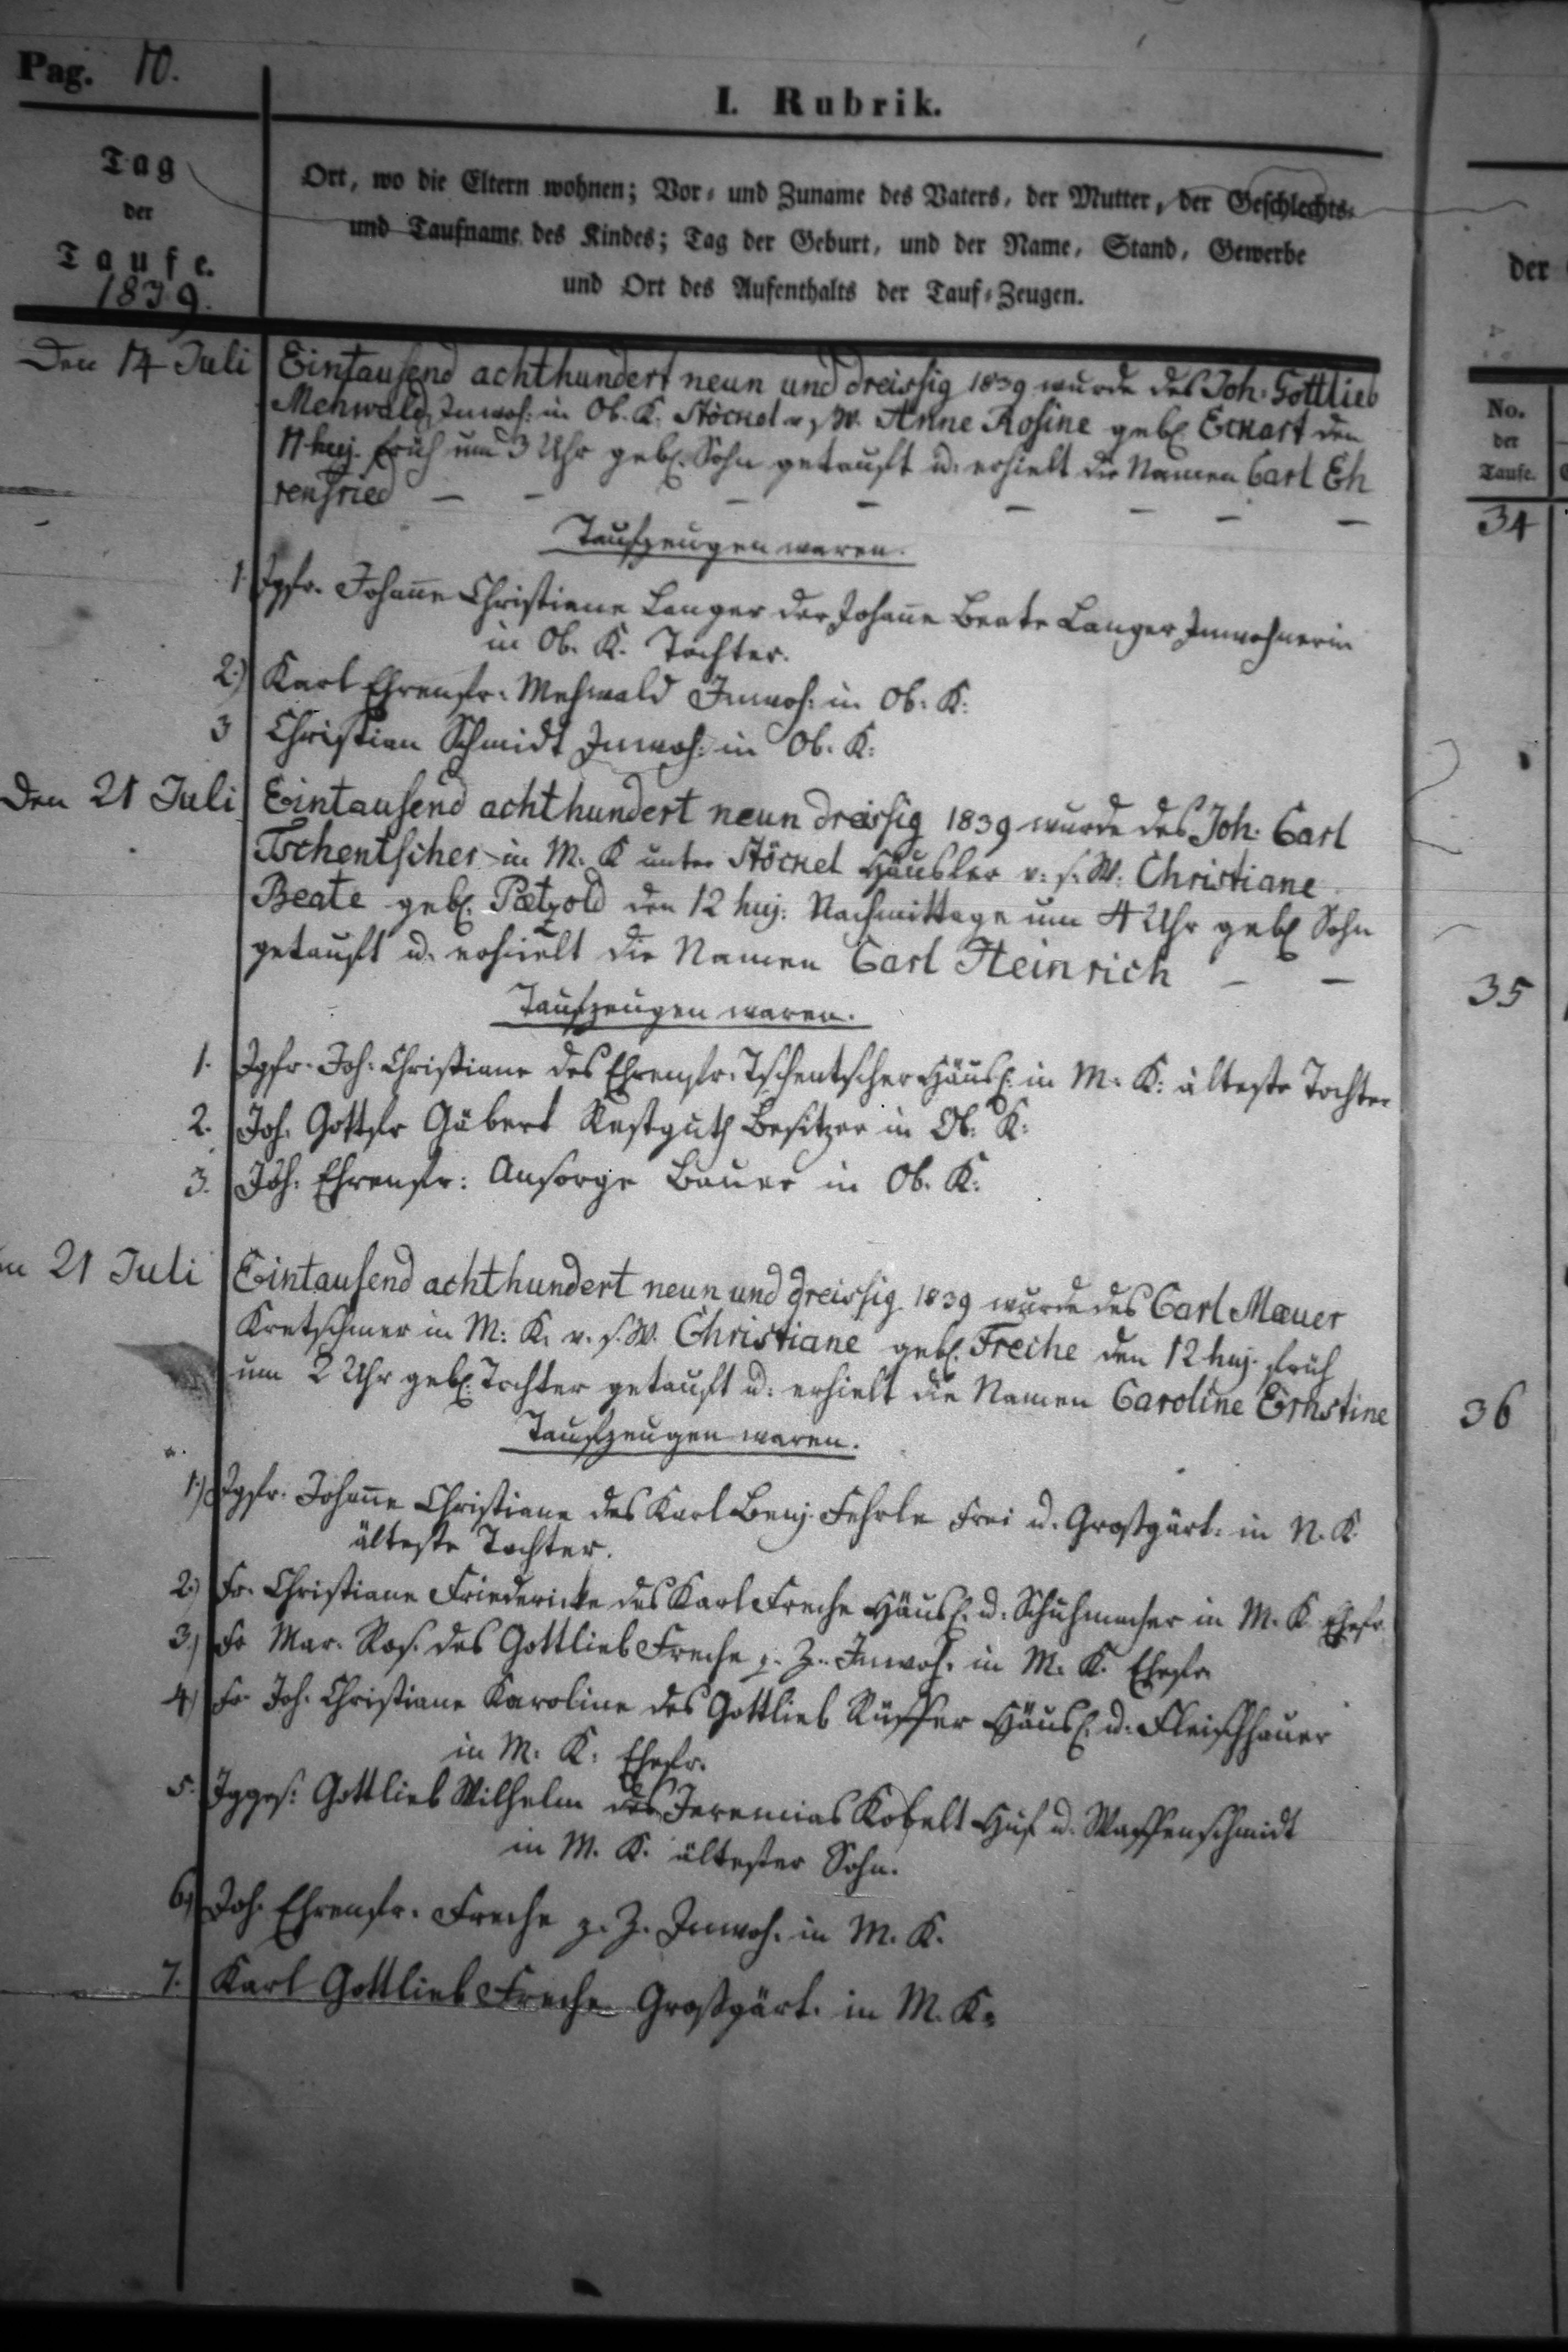 Pag. 10.
I. Rubrik.
Tag
der
Taufe.
1839.
Ort, wo die Eltern wohnen; Vor- und Zuname des Vaters, der Mutter, der Geschlechts-
und Taufname des Kindes; Tag der Geburt, und der Name, Stand, Gewerbe
und Ort des Aufenthalts der Tauf-Zeugen.
der
No.
der
Taufe.
Den 14 Juli
Eintausend achthundert neun und dreissig 1839 wurde des Joh. Gottlieb
Mehwald, Inwoh: in Ob. K. Stöckel v. s. W. Anne Rosine geb. Eckart den
11 huj. früh um 3 Uhr geb. Sohn getauft u. erhielt die Namen Carl Eh
renfried — — — — — — — —
34
Taufzeugen waren.
1. Jgfr. Johanne Christiane Langer der Johanne Beate Langer Inwohnerin
in Ob. K. Tochter.
2.) Karl Ehrenfr. Mehwald Inwoh: in Ob. K.
3 Christian Schmidt Inwoh: in Ob. K.
Den 21 Juli
Eintausend achthundert neun dreissig 1839 wurde des Joh. Carl
Tschentscher in M. K unter Stöckel Häusler v. s. W. Christiane
Beate geb. Pätzold den 12 huj. Nachmittage um 4 Uhr geb Sohn
getauft u. erhielt die Namen Carl Heinrich — —
35
Taufzeugen waren.
1. Jgfr. Joh: Christiane des Ehrenfr. Tschentscher Häusl. in M. K. älteste Tochter
2. Joh. Gottfr Gäbert Restguth Besitzer in Ob. K.
3. Joh: Ehrenfr: Ansorge Bauer in Ob. K.
n 21 Juli
Eintausend achthundert neun und dreissig 1839 wurde des Carl Mauer
Kretschmer in M. K. v. s. W. Christiane geb. Freche den 12 huj. früh
um 2 Uhr geb. Tochter getauft u. erhielt die Namen Caroline Ernstine
36
Taufzeugen waren.
1.) Jgfr. Johanne Christiane des Karl Benj. Fehrle Frei u. Großgärt. in N. K.
älteste Tochter.
2.) Fr. Christiane Friedericke des Karl Freche Häusl. u. Schuhmacher in M. K. Ehefr.
3.) Fr Mar. Ros. des Gottlieb Freche z. Z. Inwoh. in M. K. Ehefr.
4) Fr. Joh. Christiane Karoline des Gottlieb Rüffer Häusl. u. Fleischhauer
in M. K. Ehefr.
5. Jgges: Gottlieb Wilhelm des Jeremias Kobelt Huf u. Waffenschmidt
in M. K. ältester Sohn.
6) Joh. Ehrenfr. Freche z. Z. Inwoh. in M. K.
7. Karl Gottlieb Freche Großgärt. in M. K.